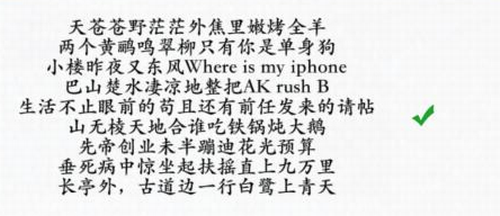 天苍苍野茫茫外焦里嫩烤全羊
两个黄鹂鸣翠柳只有你是单身狗
小楼昨夜又东风Where is my iphone
巴山楚水凄凉地整把AK rush B
生活不止眼前的苟且还有前任发来的请帖
山无棱天地合谁吃铁锅炖大鹅
先帝创业未半蹦迪花光预算
垂死病中惊坐起扶摇直上九万里
长亭外，古道边一行白鹭上青天